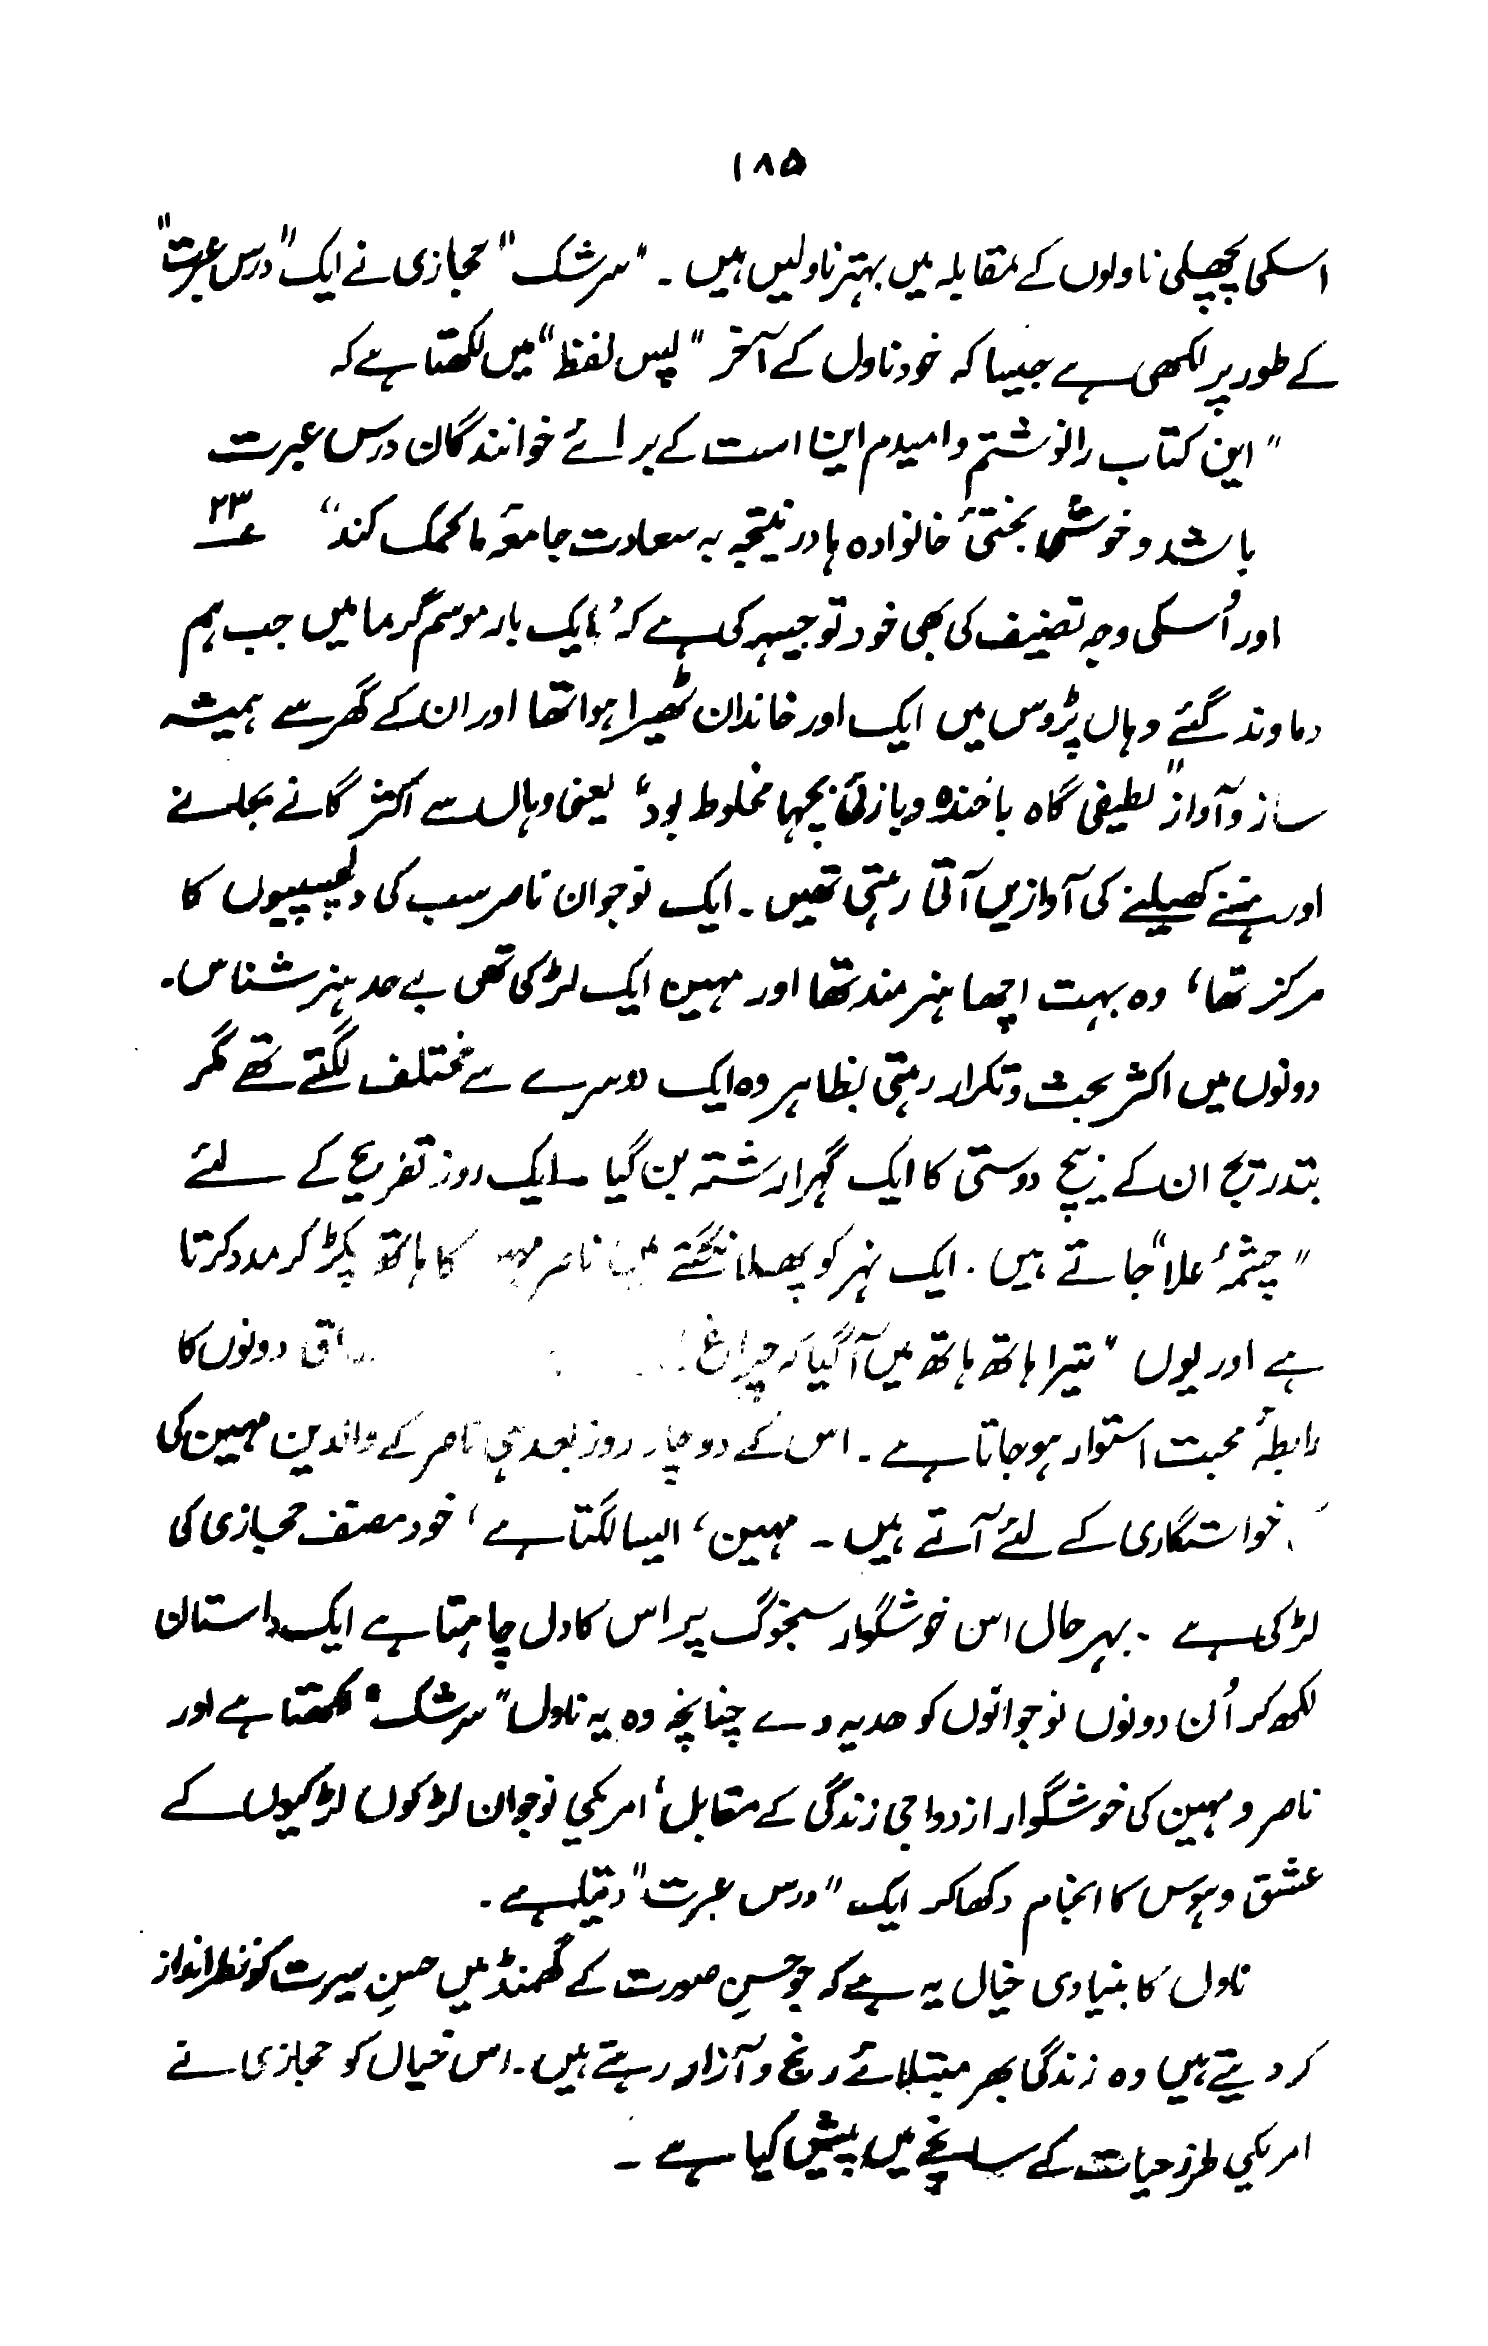 ۱۸۵
اسکی پچھلی ناولوں کے مقابلہ میں بہتر ناولیں ہیں ۔ "سرشک" حجازی نے ایک "درس عبرت"
کے طور پر لکھی ہے جیسا کہ خود ناول کے آخر "پس لفظ" میں لکھتا ہے کہ
"این کتاب را نوشتم و امیدم این است کے برائے خوانندگان درس عبرت
باشد و خوشی بختیٔ خانوادہ ہا در نتیجہ بہ سعادت جامعۂ ما کمک کند" ۲۳؎
اور اُسکی وجہ تصنیف کی بھی خود توجیہہ کی ہے کہ 'ایک بار موسم گرما میں جب ہم
دماوند گئے وہاں پڑوس میں ایک اور خاندان ٹھیرا ہوا تھا اور ان کے گھر سے ہمیشہ
ساز و آواز "لطیفی گاہ با خندہ و بازیٔ بچہا مخلوط بود" یعنی وہاں سے اکثر گانے بجانے
اور ہنسنے کھیلنے کی آوازیں آتی رہتی تھیں ۔ ایک نوجوان ناصر سب کی دلچسپیوں کا
مرکز تھا، وہ بہت اچھا ہنرمند تھا اور مہین ایک لڑکی تھی بے حد ہنر شناس۔
دونوں میں اکثر بحث و تکرار رہتی بظاہر وہ ایک دوسرے سے مختلف لگتے تھے مگر
بتدریج ان کے بیچ دوستی کا ایک گہرا رشتہ بن گیا ۔ ایک روز تفریح کے لئے
"چشمۂ علا" جاتے ہیں ۔ ایک نہر کو پھلانگتے میں ناصر کا ہاتھ پکڑ کر مدد کرتا
ہے اور یوں "تیرا ہاتھ ہاتھ میں آ گیا کہ چراغ دونوں کا
رابطۂ محبت استوار ہو جاتا ہے ۔ اس کے دو چار روز بعد ہی ناصر کے والدین مہین کی
خواستگاری کے لئے آتے ہیں ۔ مہین، ایسا لگتا ہے، خود مصنف حجازی کی
لڑکی ہے ۔ بہر حال اس خوشگوار سنجوگ پر اس کا دل چاہتا ہے ایک داستان
لکھ کر اُن دونوں نوجوانوں کو ھدیہ دے چنانچہ وہ یہ ناول "سرشک" لکھتا ہے اور
ناصر و مہین کی خوشگوار ازدواجی زندگی کے مقابل، امریکی نوجوان لڑکوں لڑکیوں کے
عشق و ہوس کا انجام دکھا کر ایک "درس عبرت" دیتا ہے ۔
ناول کا بنیادی خیال یہ ہے کہ جو حسنِ صورت کے گھمنڈ میں حسنِ سیرت کو نظر انداز
کر دیتے ہیں وہ زندگی بھر مبتلائے رنج و آزار رہتے ہیں ۔ اس خیال کو حجازی نے
امریکی طرز حیات کے سانچے میں پیش کیا ہے ۔